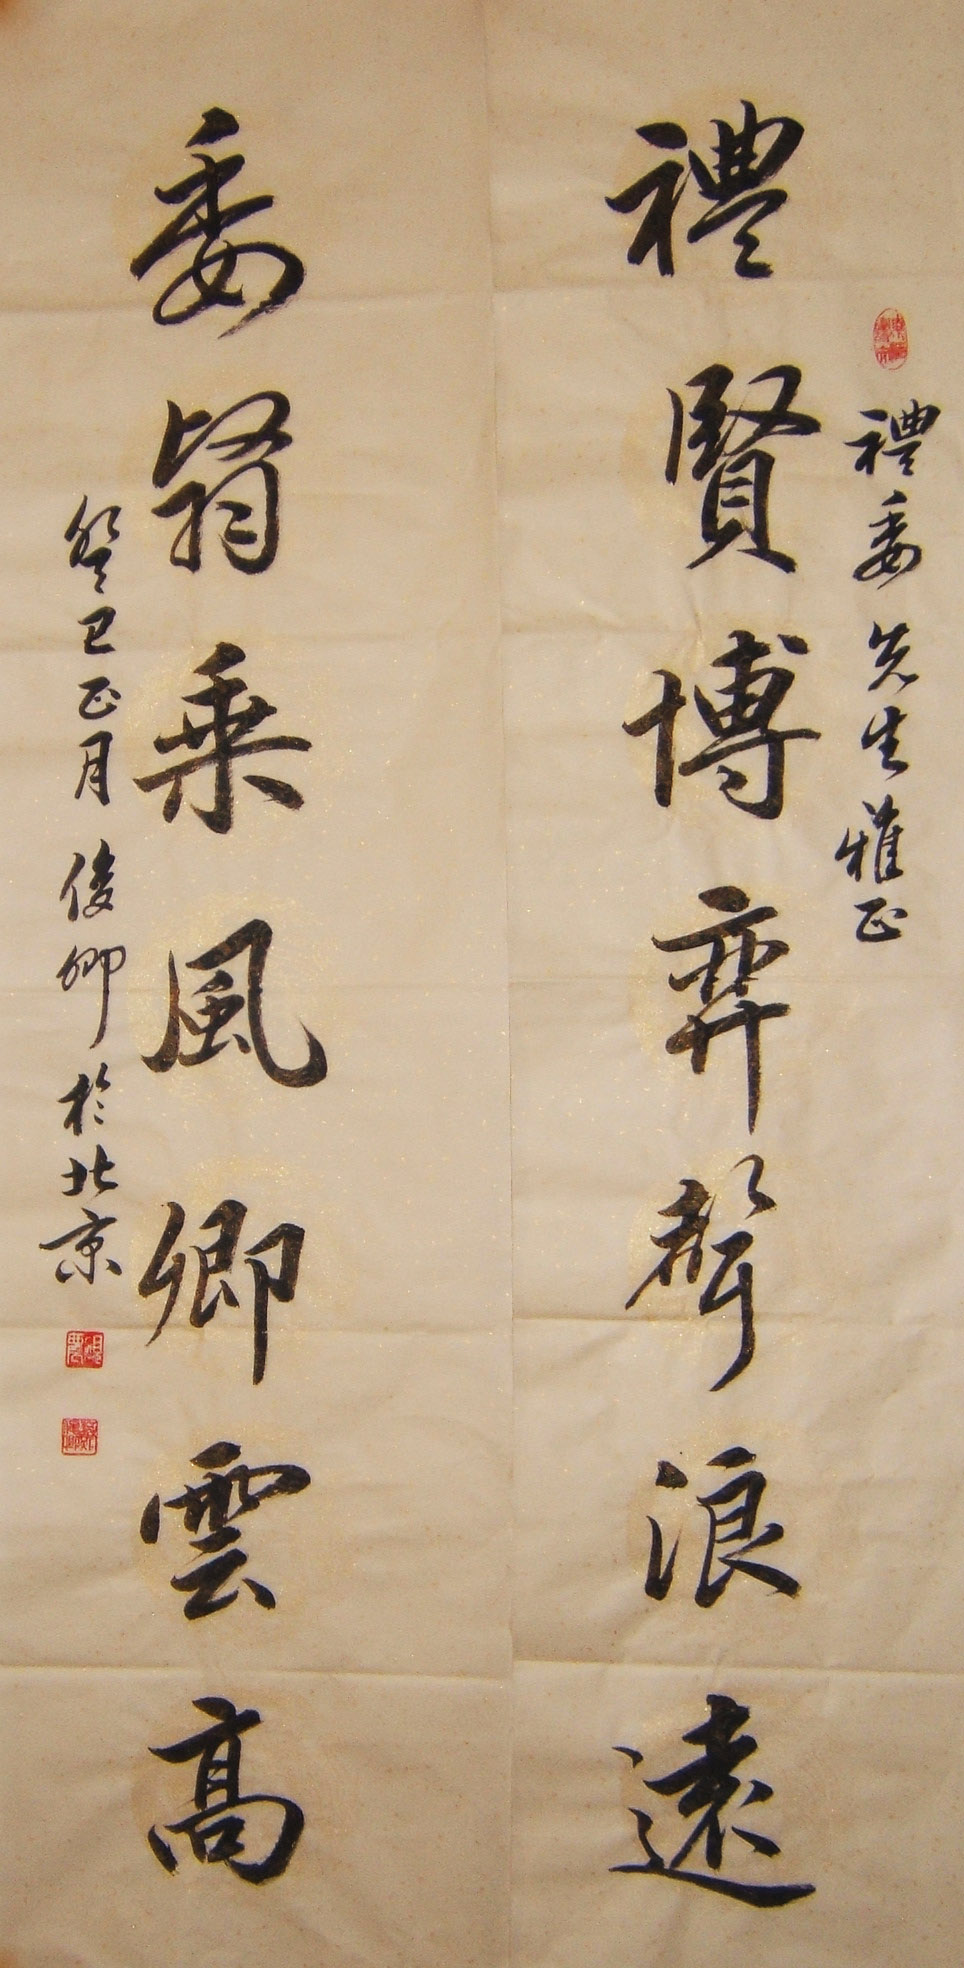 禮委先生雅正
禮賢博弈聲浪遠
委翁乘風卿雲高
癸巳正月俊卿於北京